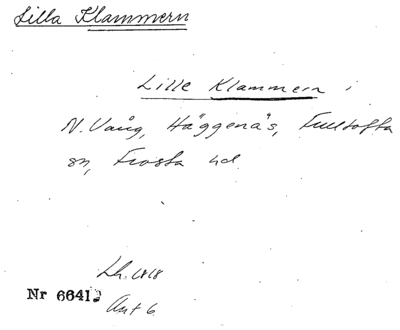 Lilla Klammern
Lille Klammern i
N. Vång, Häggenäs, Fulltofta
sn, Frosta hd
Lh. 1818
Nr 6641
Akt 6